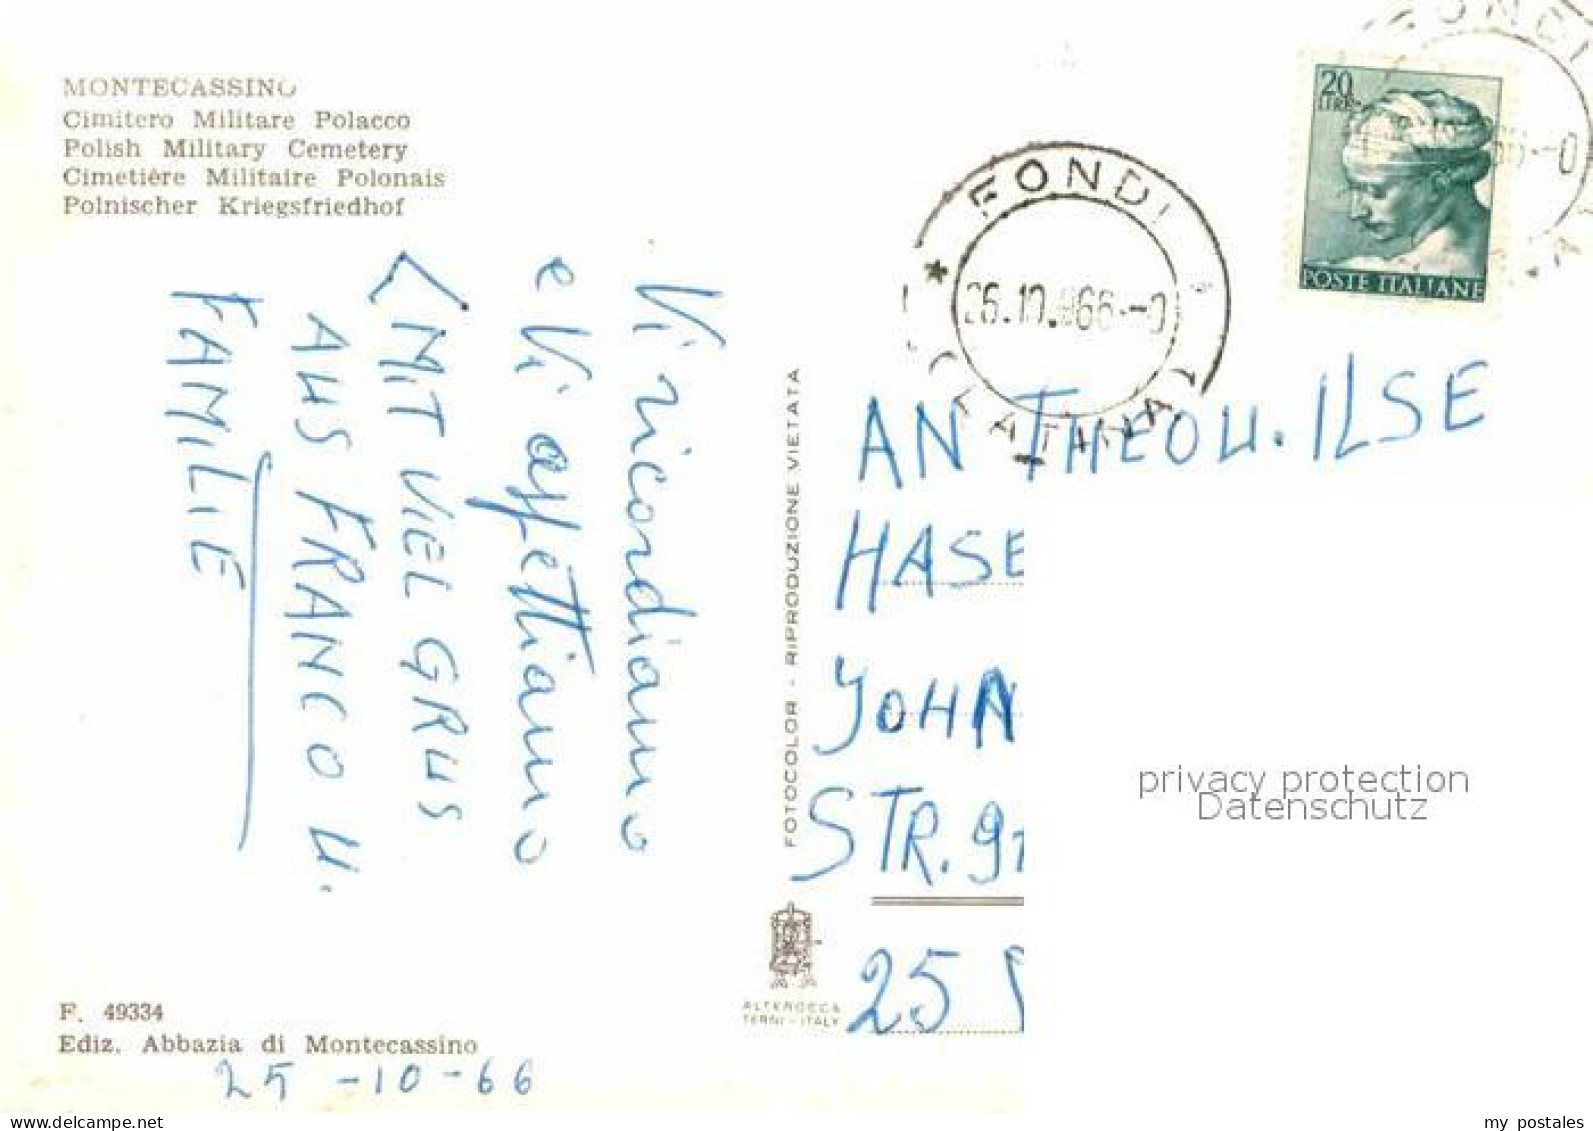 MONTECASSINO
Cimitero Militare Polacco
Polish Military Cemetery
Cimetière Militaire Polonais
Polnischer Kriegsfriedhof
Vi ricordiamo
e Vi affettiamo
MIT VIEL GRUS
AUS FRANCO U.
FAMILIE
F. 49334
Ediz. Abbazia di Montecassino
25-10-66
FOTOCOLOR - RIPRODUZIONE VIETATA
ALTEROCCA
TERNI - ITALY
FONDI
26.10.966.-0
LATINA
20
LIRE
POSTE ITALIANE
AN THEO U. ILSE
HASE
JOHAN
STR. 91
25
privacy protection
Datenschutz
www.delcampe.net
my_postales